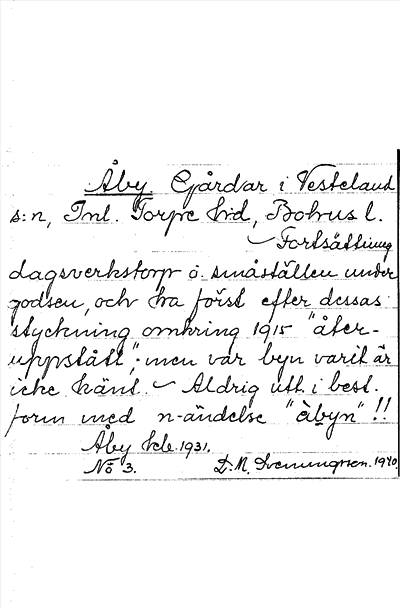 Åby. Gårdar i Vesteland
s:n, Inl. Torpe hd, Bohus l.
Fortsättning
dagsverkstorp o. småställen under
godsen, och ha först efter dessas
styckning omkring 1915 "åter-
uppstått"; men var byn varit är
icke känt. — Aldrig utt. i best.
form med n-ändelse "àbyn"!!
Åby kb. 1931.
No 3. D. N. Svenungsson. 1940.